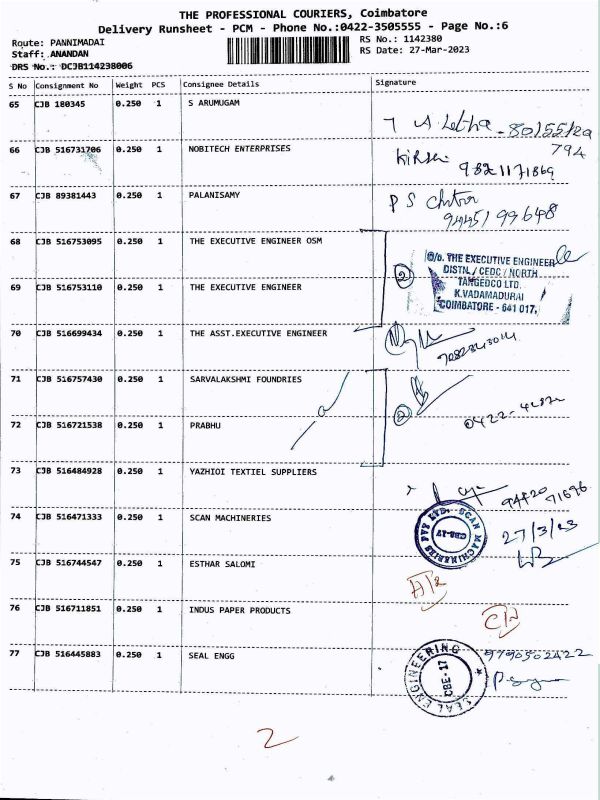 THE PROFESSIONAL COURIERS, Coimbatore
Delivery Runsheet - PCM - Phone No.:0422-3505555 - Page No.:6
Route: PANNIMADAI
Staff: ANANDAN
DRS No.: DCJB114238006
RS No.: 1142380
RS Date: 27-Mar-2023
S No Consignment No Weight PCS Consignee Details Signature
65 CJB 180345 0.250 1 S ARUMUGAM
66 CJB 516731706 0.250 1 NOBITECH ENTERPRISES
794
9821171869
67 CJB 89381443 0.250 1 PALANISAMY
P S Chitra
9445199648
68 CJB 516753095 0.250 1 THE EXECUTIVE ENGINEER OSM
69 CJB 516753110 0.250 1 THE EXECUTIVE ENGINEER
2
O/o. THE EXECUTIVE ENGINEER
DISTN./ CEDC / NORTH
TANGEDCO LTD.
K.VADAMADURAI
COIMBATORE - 641 017.
70 CJB 516699434 0.250 1 THE ASST.EXECUTIVE ENGINEER
71 CJB 516757430 0.250 1 SARVALAKSHMI FOUNDRIES
2
72 CJB 516721538 0.250 1 PRABHU
73 CJB 516484928 0.250 1 YAZHIOI TEXTIEL SUPPLIERS
94420
71696
74 CJB 516471333 0.250 1 SCAN MACHINERIES
SCAN MACHINERIES PVT LTD.
CBE-17
27/3/23
75 CJB 516744547 0.250 1 ESTHAR SALOMI
76 CJB 516711851 0.250 1 INDUS PAPER PRODUCTS
77 CJB 516445883 0.250 1 SEAL ENGG
SEAL ENGINEERING
CBE-17
9790502422
2